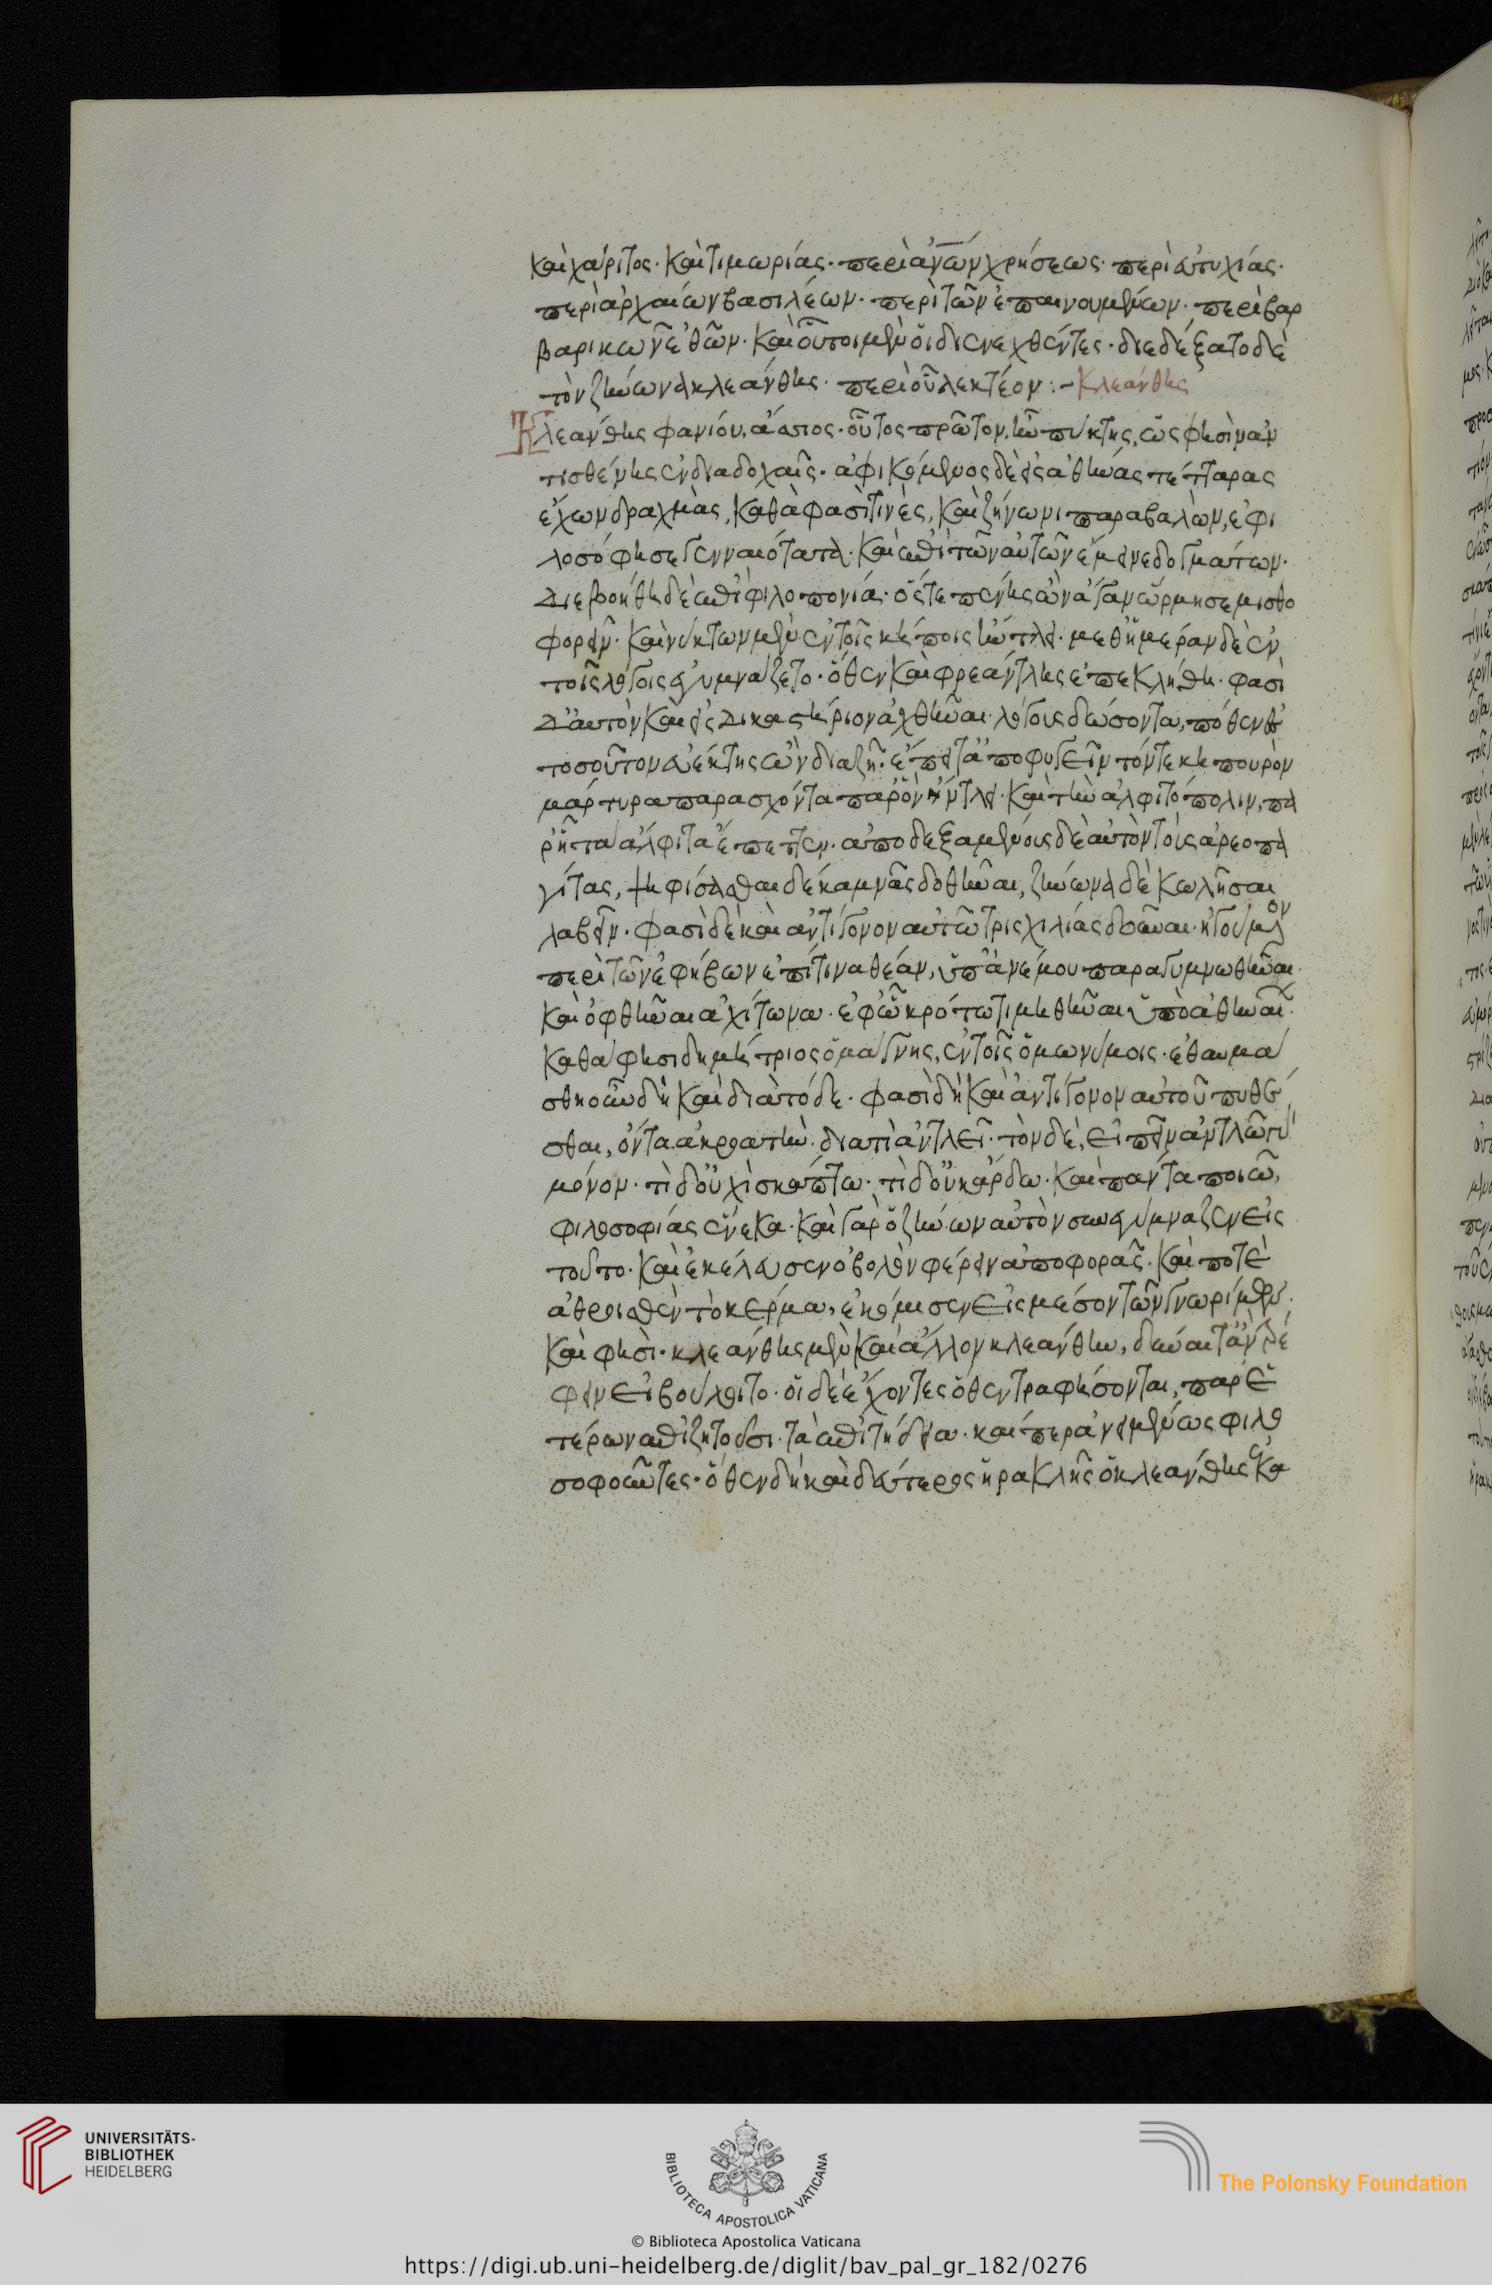 καὶ χάριτος· καὶ τιμωρίας· περὶ ἀνων χρήσεως· περὶ εὐτυχίας·
περὶ ἀρχαίων βασιλέων· περὶ τῶν ἐπαινουμένων· περὶ βαρ
βαρικῶν ἐθῶν· καὶ οὗτοι μὲν οἱ διενεχθέντες· διεδέξατο δὲ
τὸν ζήνωνα κλεάνθης· περὶ οὗ λεκτέον :- Κλεάνθης
Κλεάνθης φανίου, ἄσσιος· οὗτος πρῶτον ἦν πύκτης, ὥς φησὶν ἀν
τισθένης ἐν διαδοχαῖς· ἀφικόμενος δὲ εἰς ἀθήνας τέτταρας
ἔχων δραχμὰς, καθὰ φασὶ τινὲς, καὶ ζήνωνι παραβαλὼν, ἐφι
λοσόφησε γενναιότατα· καὶ ἐπὶ τῶν αὐτῶν ἔμεινε δογμάτων·
Διεβοήθη δὲ ἐπὶ φιλοπονίᾳ· ὅς τε πένης ὢν ἄγαν ὥρμησε μισθο
φορεῖν· καὶ νύκτωρ μὲν ἐν τοῖς κήποις ἤντλει· μεθ' ἡμέραν δὲ ἐν
τοῖς λόγοις ἐγυμνάζετο· ὅθεν καὶ φρεάντλης ἐπεκλήθη· φασὶ
δ' αὐτὸν καὶ εἰς δικαστήριον ἀχθῆναι· λόγους δώσοντα, πόθεν
τοσοῦτον εὐέκτης ὢν διαζῇ· ἔπειτ' ἀποφυγεῖν τόν τε κηπουρὸν
μάρτυρα παρασχόντα παρ' ὃν ἤντλει· καὶ τὴν ἀλφιτόπολιν, πα
ρ' ᾗ τὰ ἄλφιτα ἔπεττεν· ἀποδεξαμένους δὲ αὐτὸν τοὺς ἀρεοπα
γίτας, ψηφίσασθαι δέκα μνᾶς δοθῆναι, ζήνωνα δὲ κωλῦσαι
λαβεῖν· φασὶ δὲ καὶ ἀντίγονον αὐτῷ τρισχιλίας δοῦναι· ἡγούμενον
περὶ τῶν ἐφήβων ἐπί τινα θέαν, ὑπ' ἀνέμου παραγυμνωθῆναι·
καὶ ὀφθῆναι ἀχίτωνα· ἐφ' ᾧ κρότῳ τιμηθῆναι ὑπὸ ἀθηναί·
καθά φησι δημήτριος ὁ μάγνης, ἐν τοῖς ὁμωνύμοις· ἐθαυμά
σθη οὖν δὴ καὶ διὰ τόδε· φασὶ δὴ καὶ ἀντίγονον αὐτοῦ πυθέ
σθαι, ὄντα ἀκροατὴν· διατί ἀντλεῖ· τὸν δὲ, εἰπεῖν ἀντλῶ γὰρ
μόνον· τί δ' οὐχὶ σκάπτω· τί δ' οὐκ ἄρδω· καὶ πάντα ποιῶ,
φιλοσοφίας ἕνεκα· καὶ γὰρ ὁ ζήνων αὐτὸν συνεγύμναζεν εἰς
τοῦτο· καὶ ἐκέλευσεν ὀβολὸν φέρειν ἀποφορᾶς· καὶ ποτὲ
ἀθροισθὲν τὸ κέρμα, ἐκόμισεν εἰς μέσον τῶν γνωρίμων·
καὶ φησὶ· κλεάνθης μὲν καὶ ἄλλον κλεάνθην, δύναιτ' ἂν τρέ
φειν εἰ βούλοιτο· οἱ δὲ ἔχοντες ὅθεν τραφήσονται, παρ' ἑ
τέρων ἐπιζητοῦσι· τὰ ἐπιτήδεια· καίπερ ἀνειμένως φιλο
σοφοῦντες· ὅθεν δὴ καὶ δεύτερος ἡρακλῆς ὁ κλεάνθης ἐκα
UNIVERSITÄTS-
BIBLIOTHEK
HEIDELBERG
BIBLIOTECA APOSTOLICA VATICANA
The Polonsky Foundation
© Biblioteca Apostolica Vaticana
https://digi.ub.uni-heidelberg.de/diglit/bav_pal_gr_182/0276